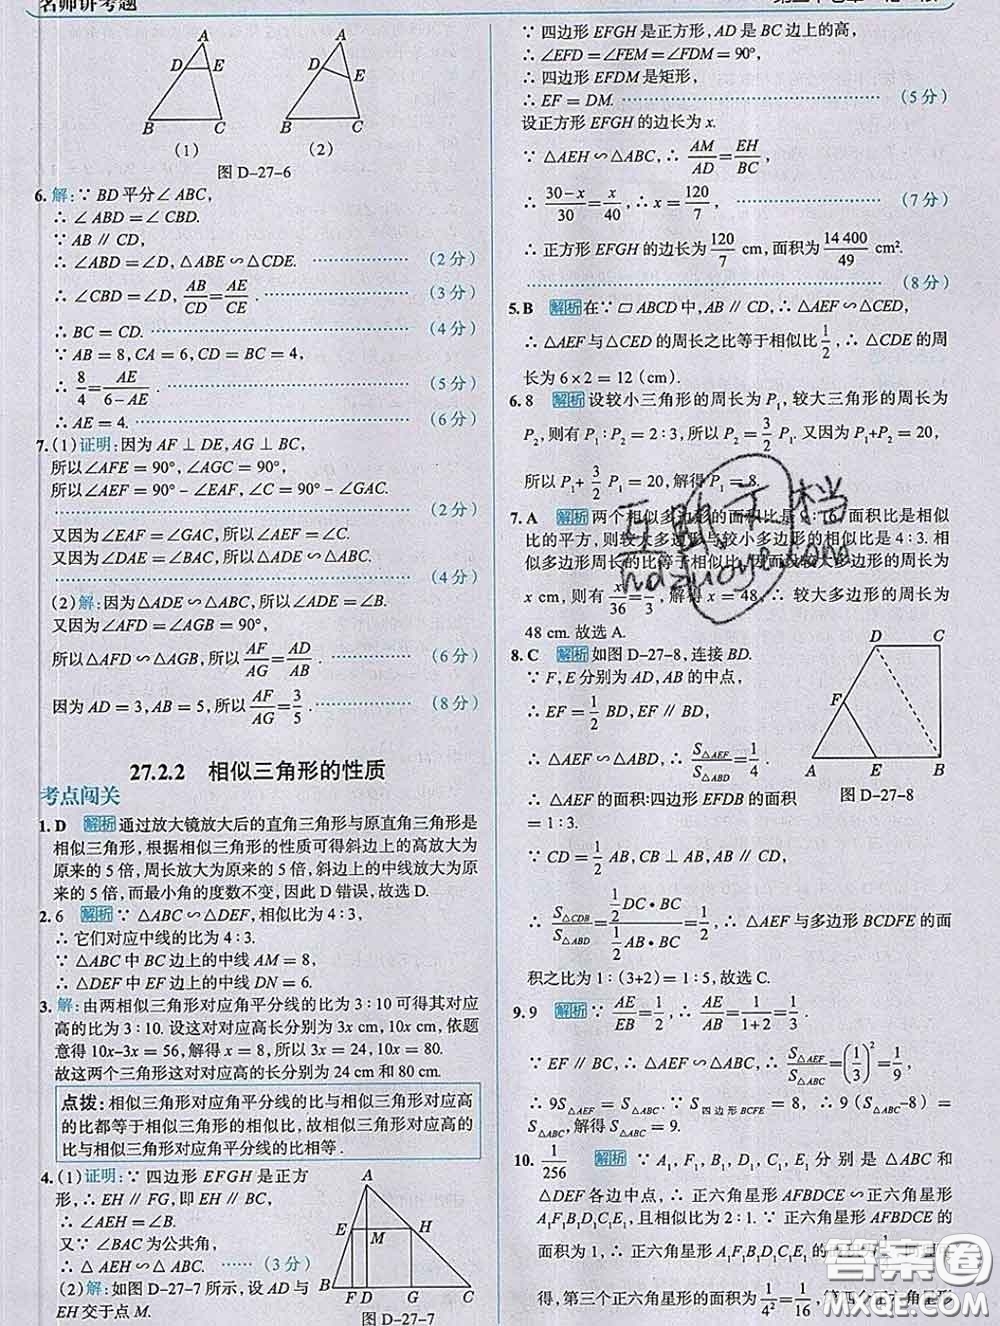 名师讲考题
A
D
E
B
C
(1)
A
D
E
B
C
(2)
图 D-27-6
6. 解:∵ BD平分∠ABC,
∴ ∠ABD=∠CBD.
∵ AB∥CD,
∴ ∠ABD=∠D,△ABE∽△CDE. (2分)
∴ ∠CBD=∠D, AB/CD=AE/CE. (3分)
∴ BC=CD. (4分)
∵ AB=8,CA=6,CD=BC=4,
∴ 8/4=AE/(6-AE). (5分)
∴ AE=4. (6分)
7. (1)证明:因为AF⊥DE,AG⊥BC,
所以∠AFE=90°,∠AGC=90°,
所以∠AEF=90°-∠EAF,∠C=90°-∠GAC.
(2分)
又因为∠EAF=∠GAC,所以∠AEF=∠C.
又因为∠DAE=∠BAC,所以△ADE∽△ABC.
(4分)
(2)解:因为△ADE∽△ABC,所以∠ADE=∠B.
又因为∠AFD=∠AGB=90°,
所以△AFD∽△AGB,所以AF/AG=AD/AB. (6分)
因为AD=3,AB=5,所以AF/AG=3/5. (8分)
27.2.2 相似三角形的性质
考点闯关
1. D 解析 通过放大镜放大后的直角三角形与原直角三角形是
相似三角形,根据相似三角形的性质可得斜边上的高放大为
原来的5倍,周长放大为原来的5倍,斜边上的中线放大为原
来的5倍,而最小角的度数不变,因此D错误,故选D.
2. 6 解析 ∵ △ABC∽△DEF,相似比为4:3,
∴ 它们对应中线的比为4:3.
∵ △ABC中BC边上的中线AM=8,
∴ △DEF中EF边上的中线DN=6.
3. 解:由两相似三角形对应角平分线的比为3:10可得其对应
高的比为3:10.设这对对应高长分别为3x cm,10x cm,依题
意得10x-3x=56,解得x=8,所以3x=24,10x=80.
故这两个三角形这对对应高的长分别为24 cm和80 cm.
点拨:相似三角形对应角平分线的比与相似三角形对应高
的比都等于相似三角形的相似比,故相似三角形对应高的
比与相似三角形对应角平分线的比相等.
4. (1)证明:∵ 四边形EFGH是正方
形,∴ EH∥FG,即EH∥BC,
∴ ∠AEH=∠B.
又∵ ∠BAC为公共角,
∴ △AEH∽△ABC. (3分)
(2)解:如图D-27-7所示,设AD与
EH交于点M.
A
E
M
H
B
F
D
G
C
图 D-27-7
∵ 四边形EFGH是正方形,AD是BC边上的高,
∴ ∠EFD=∠FEM=∠FDM=90°,
∴ 四边形EFDM是矩形,
∴ EF=DM. (5分)
设正方形EFGH的边长为x.
∵ △AEH∽△ABC,∴ AM/AD=EH/BC,
∴ (30-x)/30=x/40,∴ x=120/7, (7分)
∴ 正方形EFGH的边长为120/7 cm,面积为14 400/49 cm².
(8分)
5. B 解析 在∵ ▱ABCD中,AB∥CD,∴ △AEF∽△CED,
∴ △AEF与△CED的周长之比等于相似比1/2,∴ △CDE的周
长为6×2=12(cm).
6. 8 解析 设较小三角形的周长为P₁,较大三角形的周长为
P₂,则有P₁:P₂=2:3,所以P₂=3/2 P₁.又因为P₁+P₂=20,
所以P₁+3/2 P₁=20,解得P₁=8.
7. A 解析 两个相似多边形的面积比是 面积比是相似
比的平方,则较大多边形与较小多边形的相似比是4:3.相
似多边形周长的比等于相似比,因而设较大多边形的周长为
x cm,则有x/36=4/3,解得x=48,∴ 较大多边形的周长为
48 cm.故选A.
8. C 解析 如图D-27-8,连接BD.
∵ F,E分别为AD,AB的中点,
∴ EF=1/2 BD,EF∥BD,
∴ △AEF∽△ABD,∴ S△AEF/S△ABD=1/4,
∴ △AEF的面积:四边形EFDB的面积
=1:3.
D
C
F
A
E
B
图 D-27-8
∵ CD=1/2 AB,CB⊥AB,CB⊥DC,
∴ S△CDB/S△ABD=(1/2 DC·BC)/(1/2 AB·BC)=1/2,∴ △AEF与多边形BCDFE的面
积之比为1:(3+2)=1:5,故选C.
9. 9 解析 ∵ AE/EB=1/2,∴ AE/AB=1/(1+2)=1/3.
∵ EF∥BC,∴ △AEF∽△ABC,∴ S△AEF/S△ABC=(1/3)²=1/9,
∴ 9S△AEF=S△ABC.∵ S四边形BCFE=8,∴ 9(S△ABC-8)=
S△ABC,解得S△ABC=9.
10. 1/256 解析 ∵ A₁,F₁,B₁,D₁,C₁,E₁分别是△ABC和
△DEF各边中点,∴ 正六角星形AFBDCE∽正六角星形
A₁F₁B₁D₁C₁E₁,且相似比为2:1.∵ 正六角星形AFBDCE的
面积为1,∴ 正六角星形A₁F₁B₁D₁C₁E₁的
得,第三个正六角星形的面积为1/4²=1/16,第四个正六角星形
答案圈
MXQE.COM